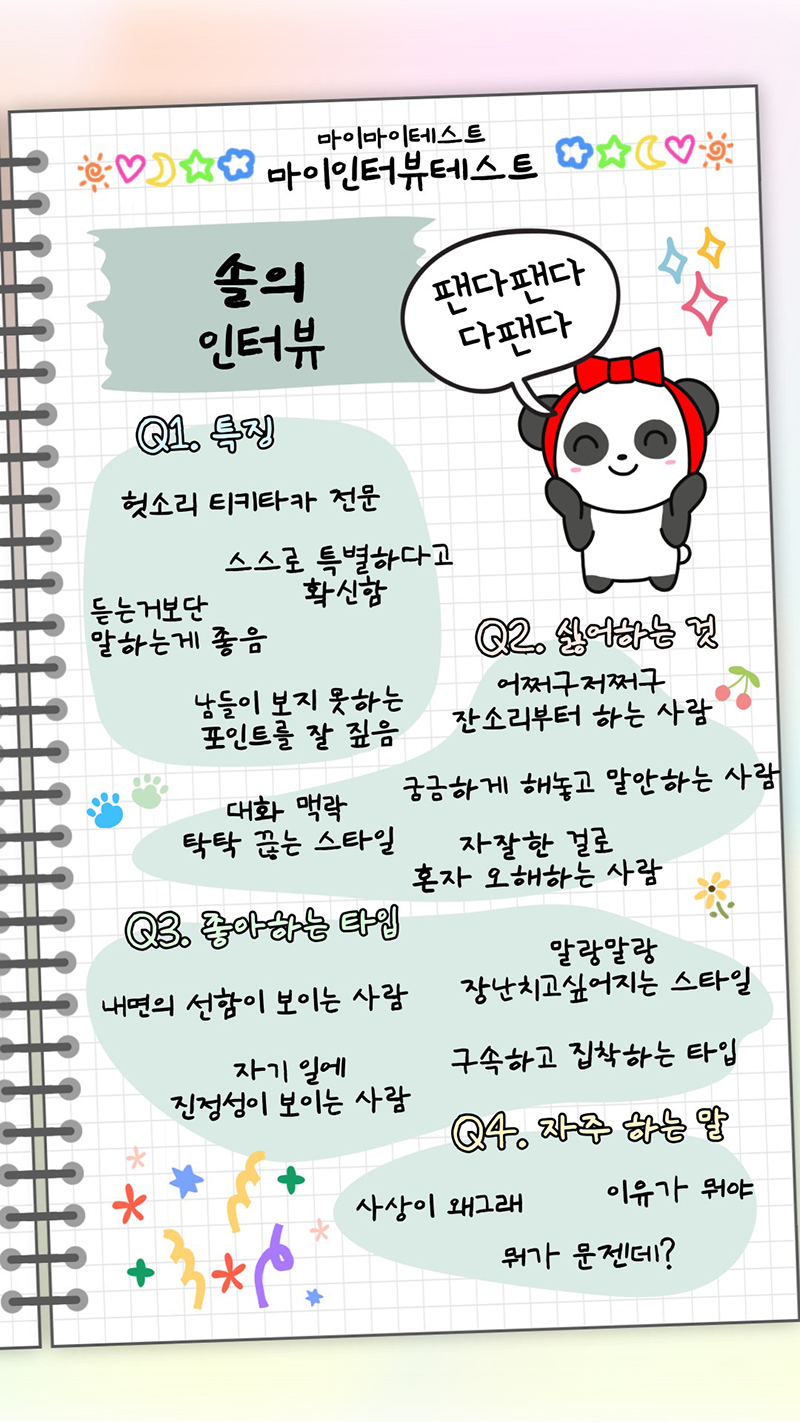 마이마이테스트
마이인터뷰테스트
솔의
인터뷰
팬다팬다
다팬다
Q1. 특징
헛소리 티키타카 전문
스스로 특별하다고
확신함
듣는거보단
말하는게 좋음
남들이 보지 못하는
포인트를 잘 짚음
Q2. 싫어하는 것
어쩌구저쩌구
잔소리부터 하는 사람
궁금하게 해놓고 말안하는 사람
대화 맥락
탁탁 끊는 스타일
자잘한 걸로
혼자 오해하는 사람
Q3. 좋아하는 타입
말랑말랑
장난치고싶어지는 스타일
내면의 선함이 보이는 사람
구속하고 집착하는 타입
자기 일에
진정성이 보이는 사람
Q4. 자주 하는 말
사상이 왜그래
이유가 뭐야
뭐가 문젠데?